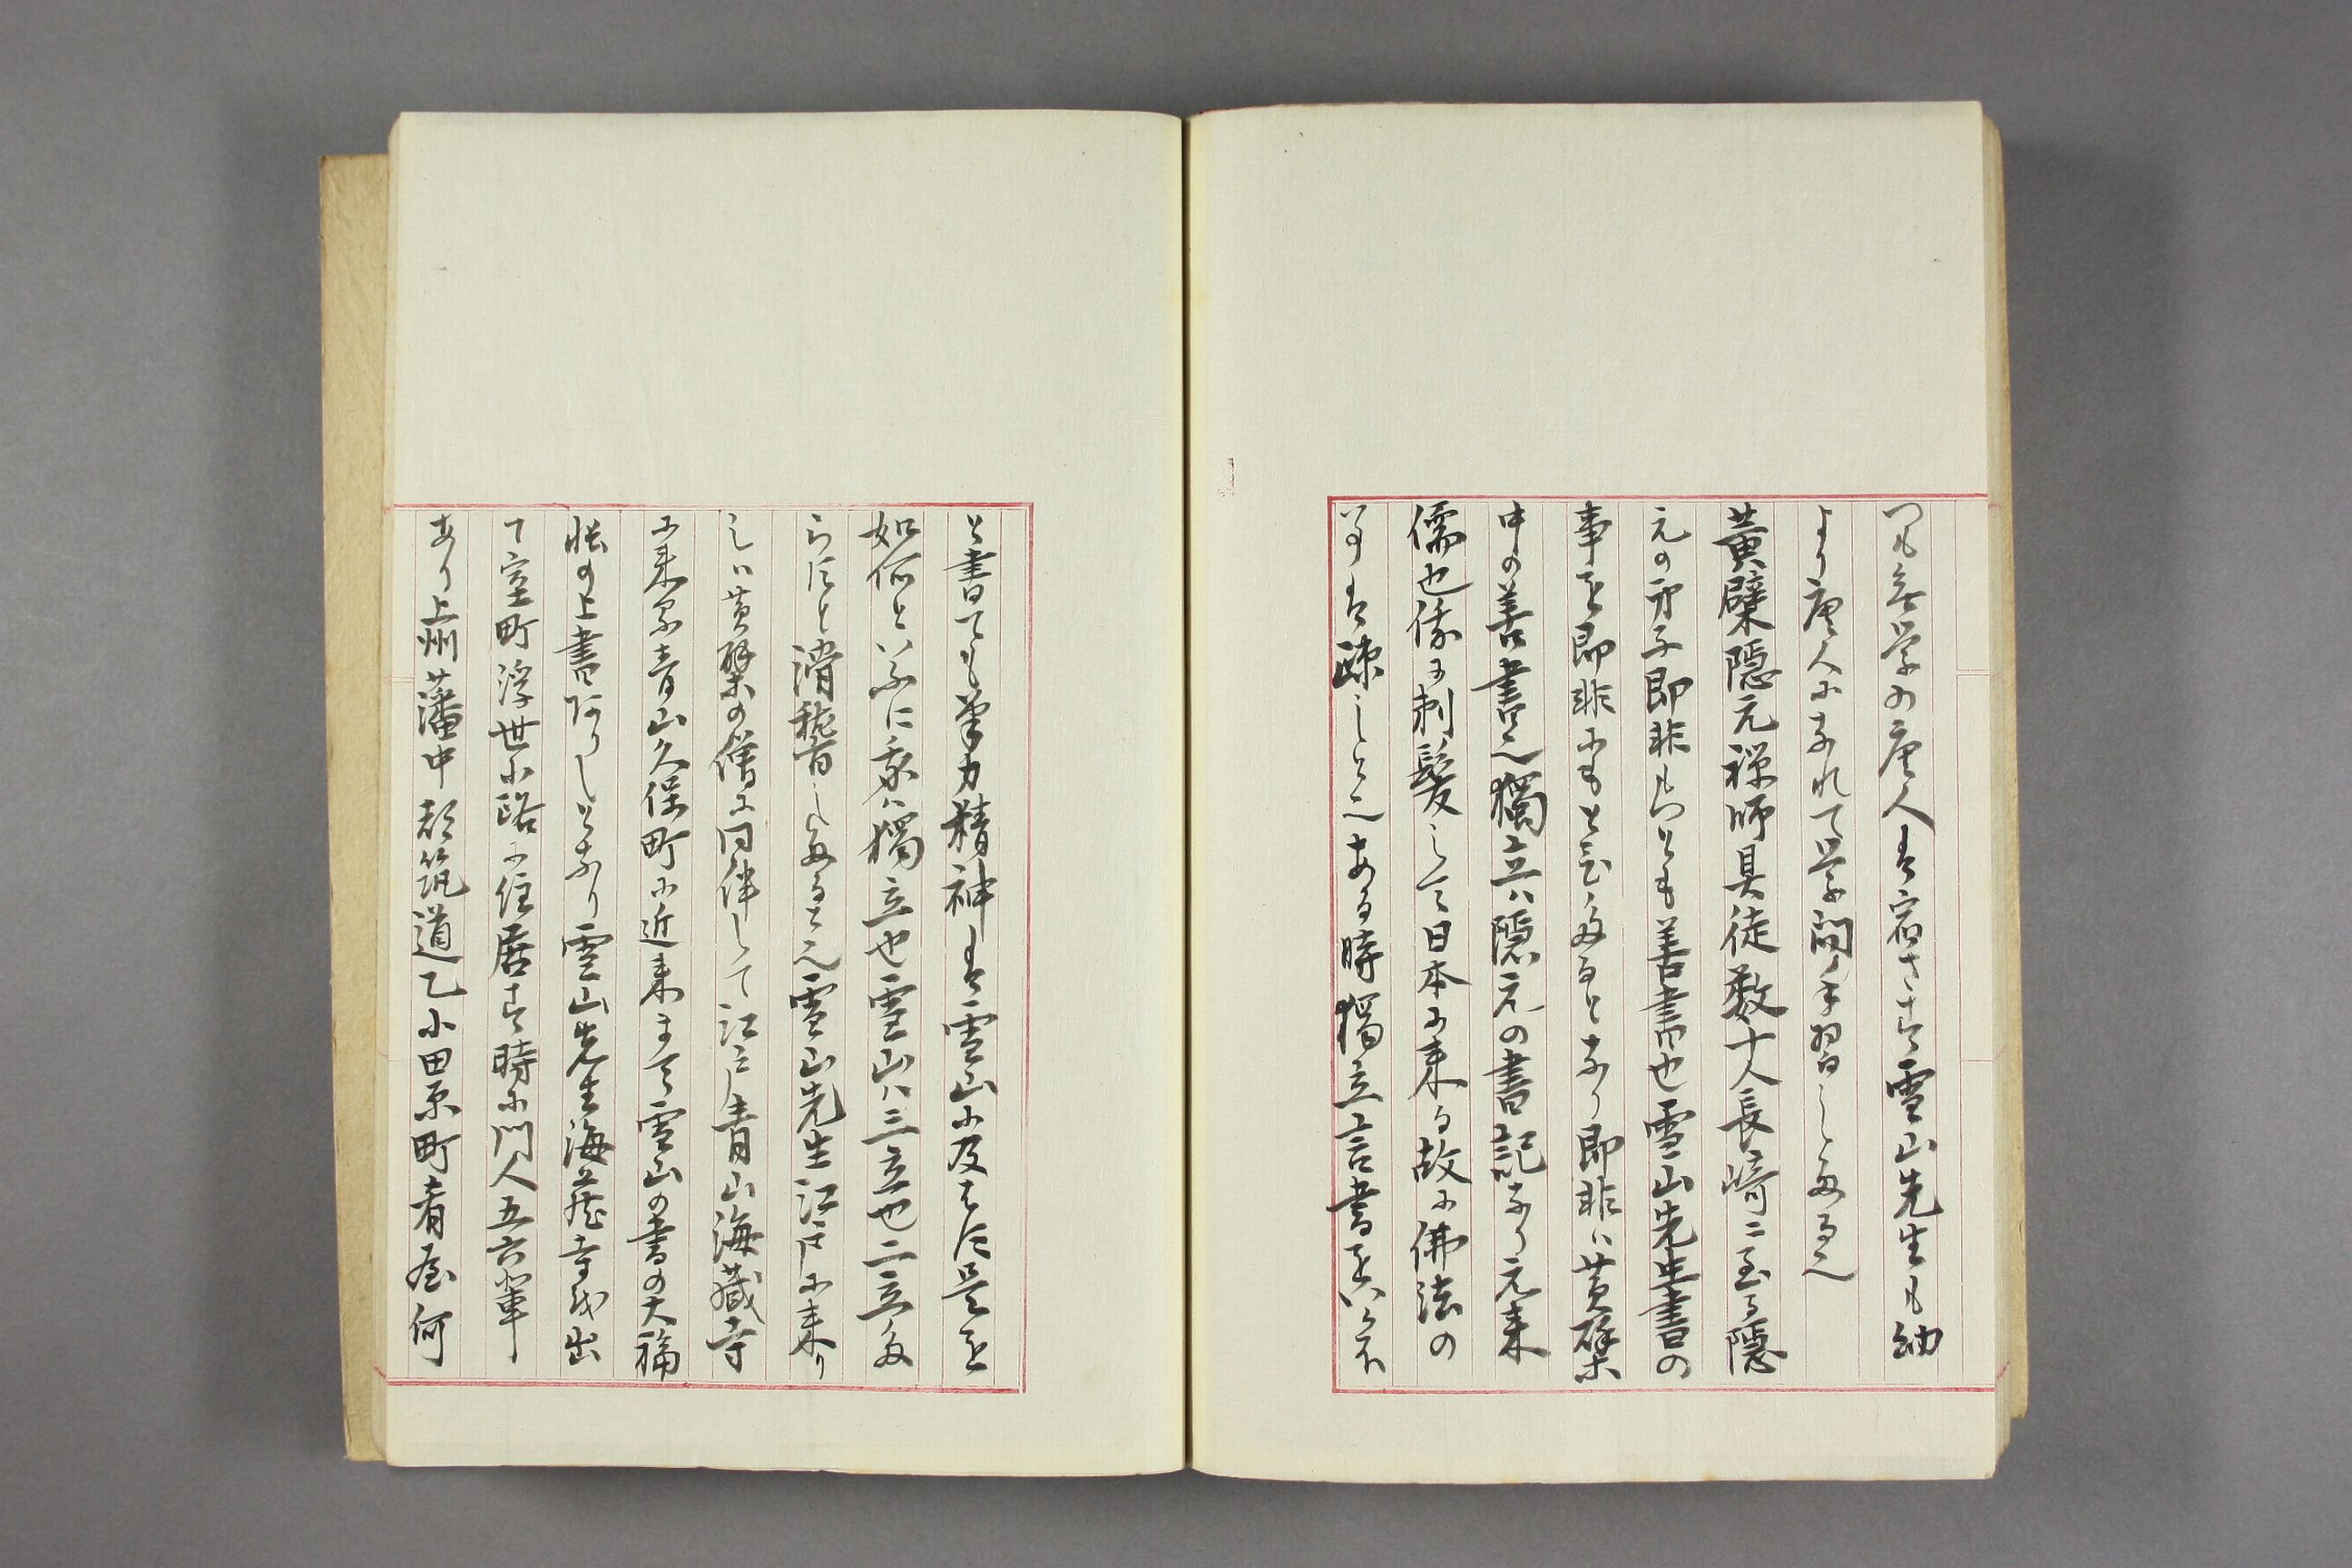 つも無学の唐人は宿さす雪山先生も幼
より唐人になれて学問手習したる也
黄檗隠元禅師具徒数十人長崎ニ至る隠
元の弟子即非もつとも善書也雪山先生書の
事を即非にもとひたるとなり即非ハ黄檗
中の善書也獨立ハ隠元の書記なり元来
儒也俄に剃髪して日本に来る故に佛法の
事は疎しと也ある時獨立言書をハ不
と書ても筆力精神は雪山に及はす是を
如何といふに我ハ獨立也雪山ハ三立也二立た
らすと滑稽したると也雪山先生江戸に来り
しハ黄檗の僧に同伴して江戸青山海藏寺
に来る青山久保町に近来まて雪山の書の大福
帳の上書ありしとなり雪山先生海蔵寺を出
て室町浮世小路に住居す時に門人五六輩
あり上州藩中都筑道乙小田原町肴屋何